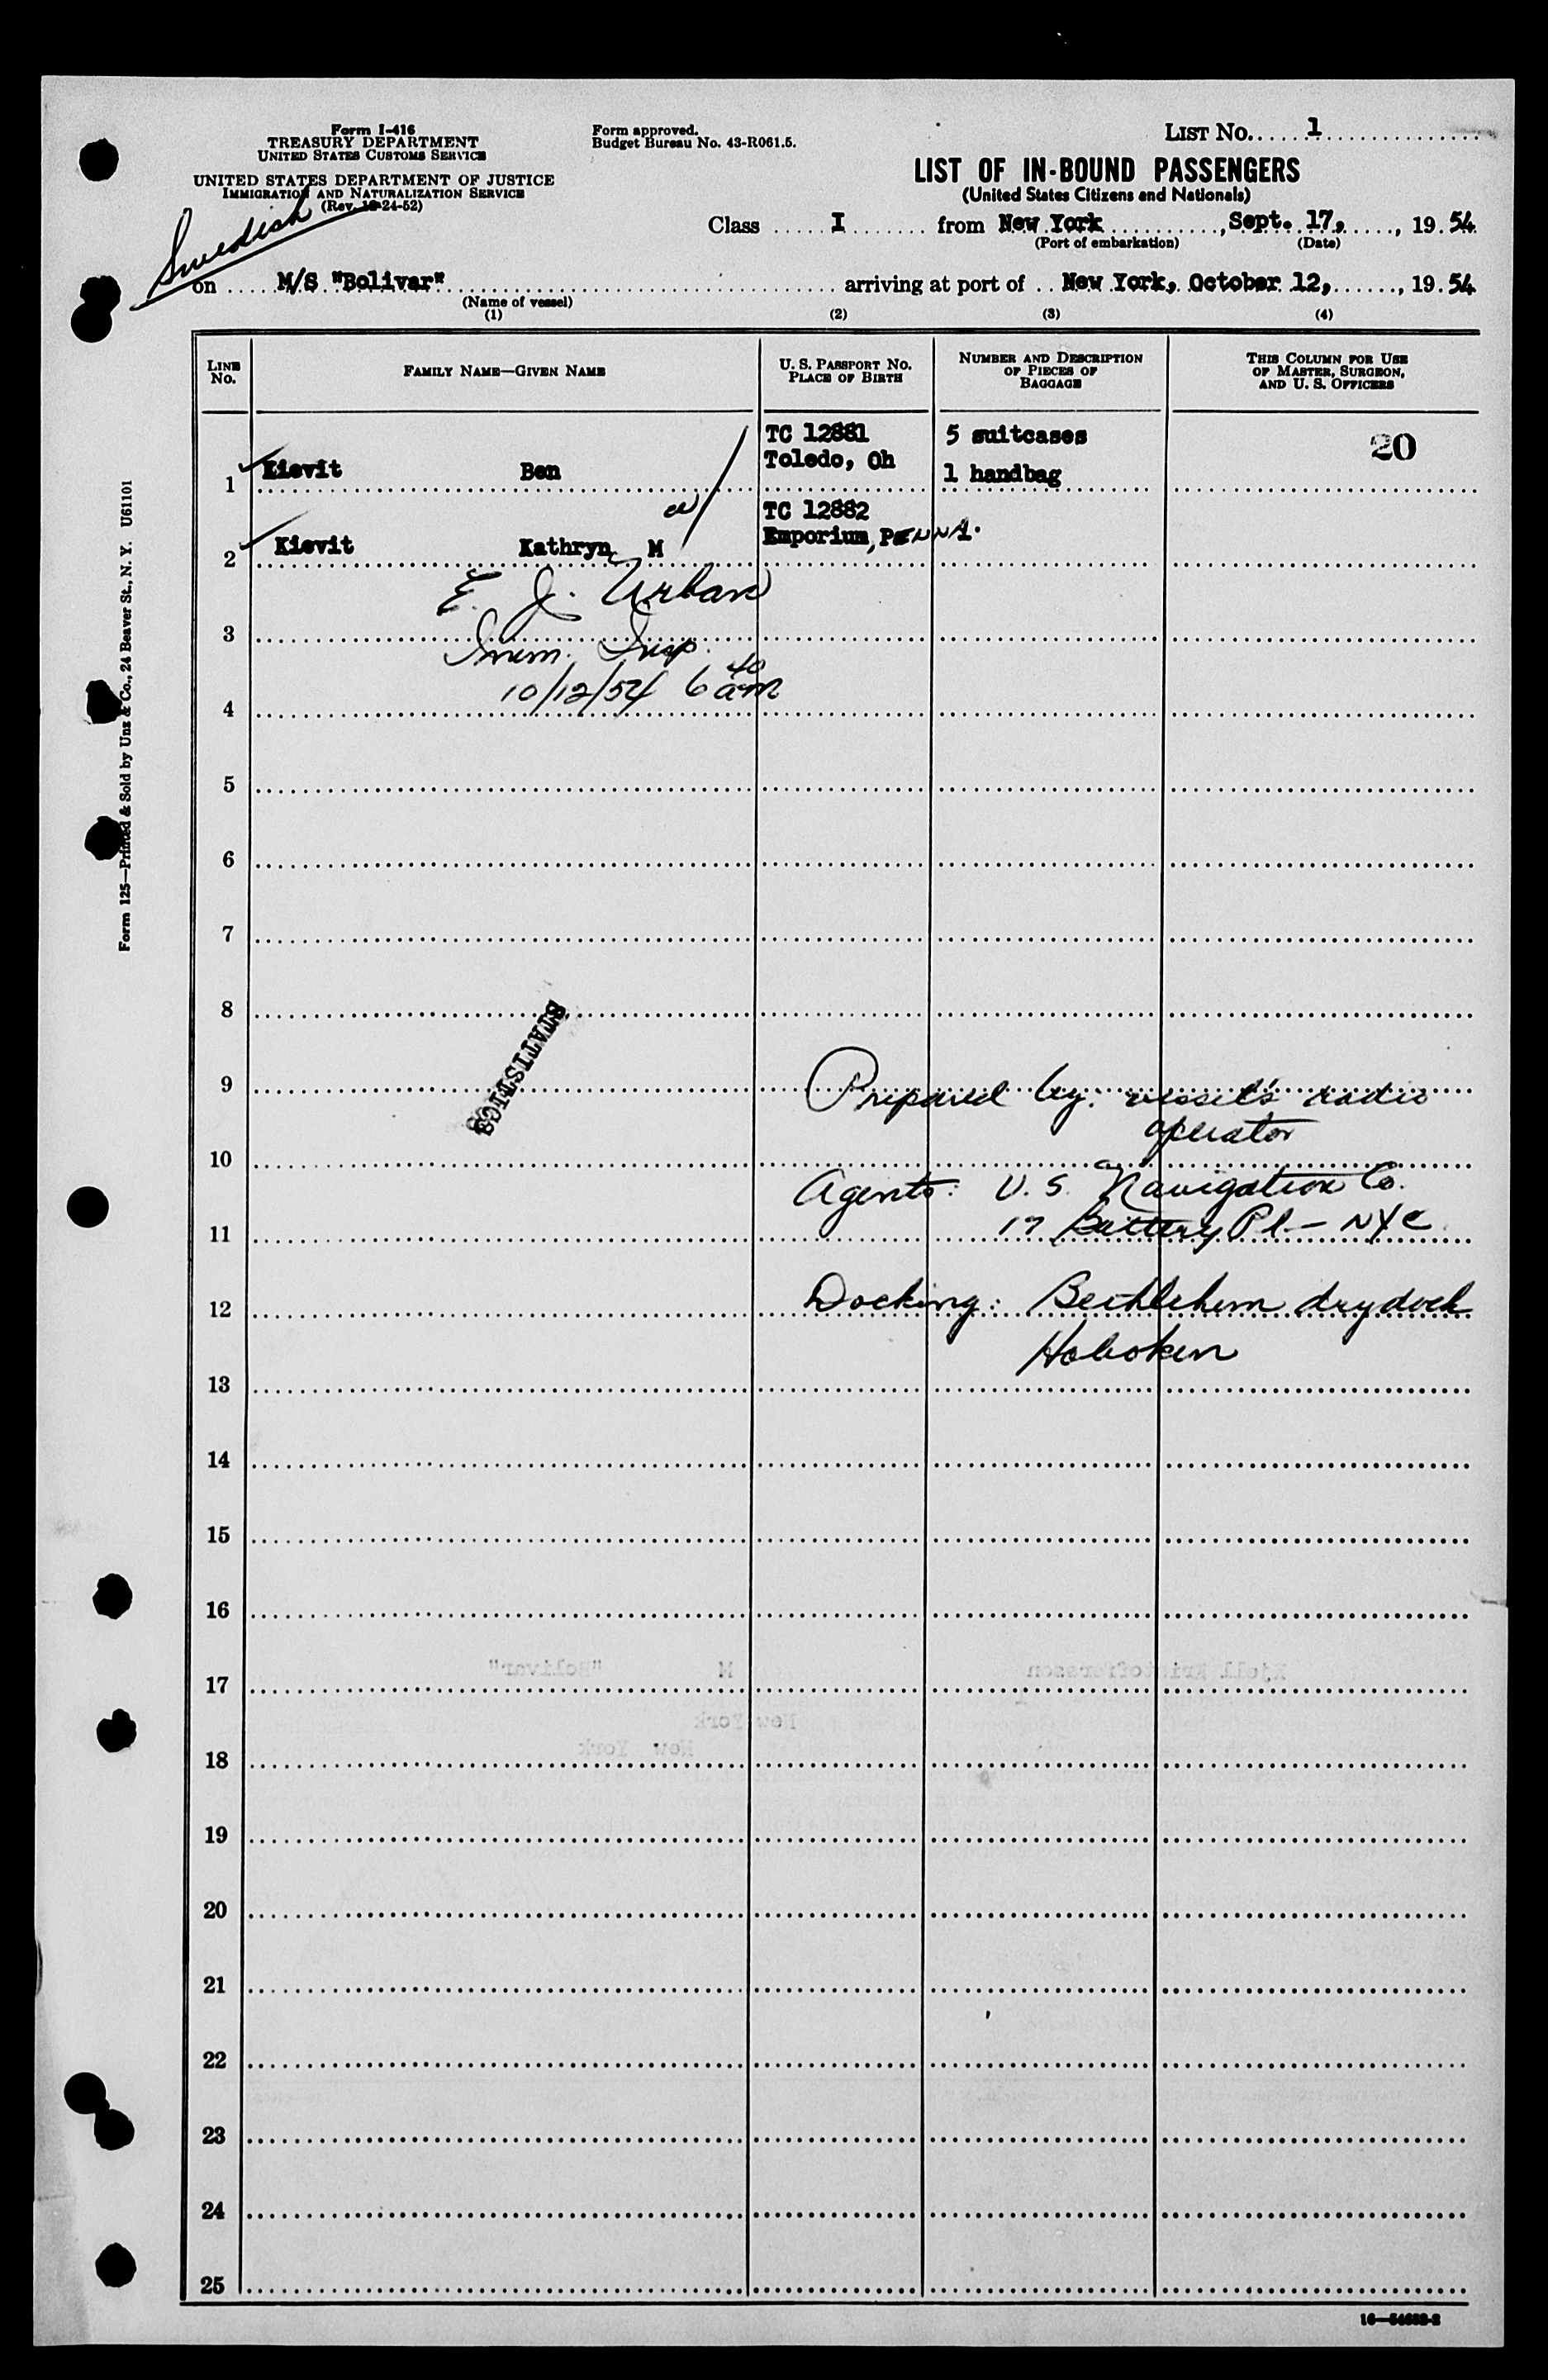 Form I-416
TREASURY DEPARTMENT
UNITED STATES CUSTOMS SERVICE
UNITED STATES DEPARTMENT OF JUSTICE
IMMIGRATION AND NATURALIZATION SERVICE
(Rev. 10-24-52)
Form approved.
Budget Bureau No. 43-R061.5.
LIST No. 1
LIST OF IN-BOUND PASSENGERS
(United States Citizens and Nationals)
Swedish
Class I from New York, Sept. 17, 1954
(Port of embarkation) (Date)
on M/S "Bolivar" arriving at port of New York, October 12, 1954
(Name of vessel)
(1) (2) (3) (4)
LINE No. FAMILY NAME—GIVEN NAME U. S. PASSPORT No. PLACE OF BIRTH NUMBER AND DESCRIPTION OF PIECES OF BAGGAGE THIS COLUMN FOR USE OF MASTER, SURGEON, AND U. S. OFFICERS
TC 12881 5 suitcases 20
1 Kievit Ben Toledo, Oh 1 handbag
TC 12882
2 Kievit Kathryn M Emporium, PENNA.
E. J. Urban
3
Imm. Insp.
10/12/54 6 40 am
4
5
6
7
8
STATISTICS
9 Prepared by: vessel's radio
operator
10
Agents: U. S. Navigation Co.
11 17 Battery Pl — NYC
12 Docking: Bethlehem drydock
Hoboken
13
14
15
16
Kjell Kristoffersson M "Bolivar"
17
New York
New York
18
19
20
21
22
23
24
25
Form 125—Printed & Sold by Unz & Co., 24 Beaver St., N. Y. U61101